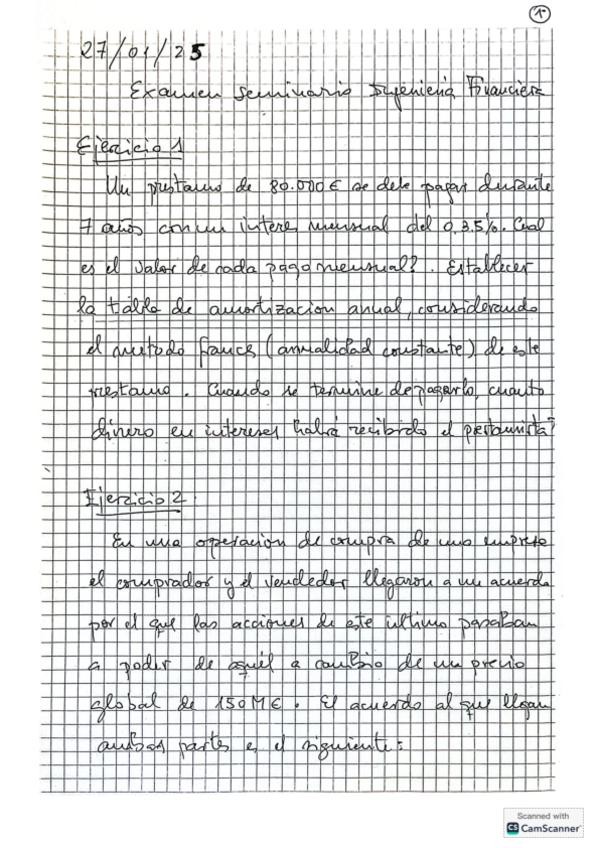 1
27/01/25
Examen Seminario Ingeniería Financiera
Ejercicio 1
Un prestamo de 80.000€ se debe pagar durante
7 años con un interes mensual del 0,35%. Cual
es el valor de cada pago mensual?. Establecer
la tabla de amortizacion anual, considerando
el metodo frances (anualidad constante) de este
prestamo. Cuando se termine de pagarlo, cuanto
dinero en intereses habrá recibido el prestamista?
Ejercicio 2:
En una operacion de compra de una empresa
el comprador y el vendedor llegaron a un acuerdo
por el que las acciones de este último pasaban
a poder de aquél a cambio de un precio
global de 150M€. El acuerdo al que llegan
ambas partes es el siguiente:
Scanned with
CS CamScanner